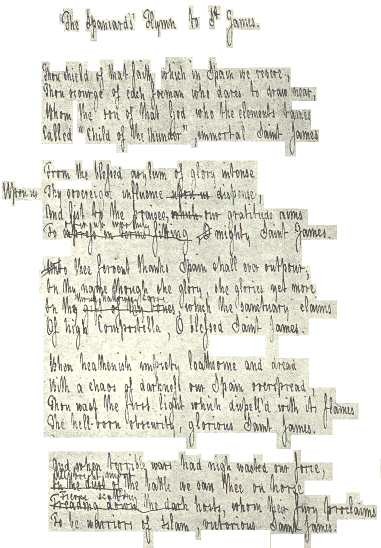 The Spaniards' Hymn to St James.
Thou shield of that faith which in Spain we revere,
Thou scourge of each foeman who dares to draw near,
Whom the Son of that God who the elements tames
Called "Child of the thunder", immortal Saint James
From the blessed asylum of glory intense
Upon us Thy sovereign influence upon us dispense,
And list to the praises our gratitude aims
To mighty Saint James.
thee fervent thanks Spain shall ever outpour,
In thy name though she glory, she glories yet more
In thy which the sanctuary claims
Of high Compostella, O blessed Saint James.
When heathenish impiety loathsome and dread
With a chaos of darkness our Spain overspread
Thou wast the first light which dispell'd with its flames
The hell-born obscurity, glorious Saint James.
And when terrible wars had nigh wasted our force,
In the dust of the battle we saw thee on horse
Fierce scattering
Treading down the dark hosts, whom fury proclaims
To be warriors of Islam, victorious Saint James.